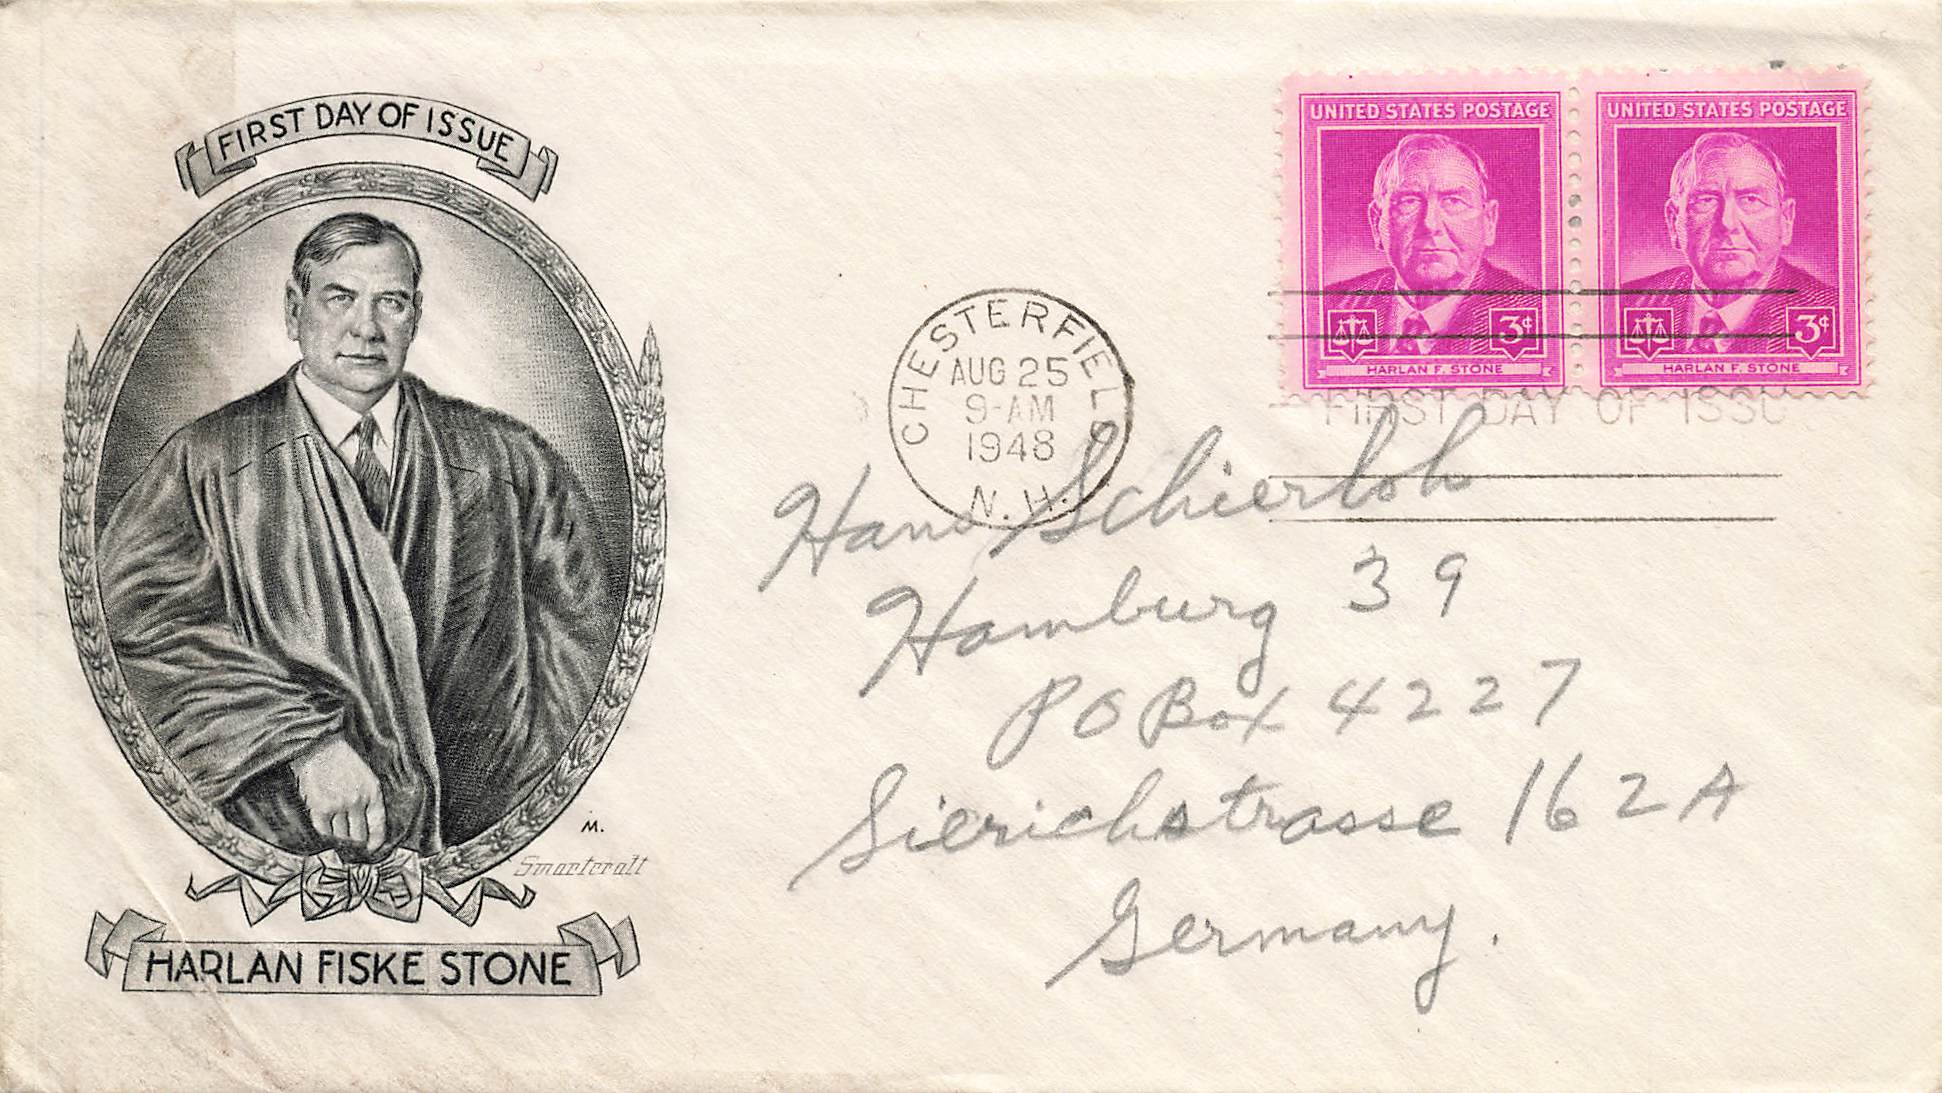 FIRST DAY OF ISSUE
M.
Smartcraft
HARLAN FISKE STONE
CHESTERFIELD
AUG 25
9-AM
1948
N.H.
UNITED STATES POSTAGE
3¢
HARLAN F. STONE
UNITED STATES POSTAGE
3¢
HARLAN F. STONE
FIRST DAY OF ISSU
Hans Schierloh
Hamburg 39
PO Box 4227
Sierichstrasse 162A
Germany.